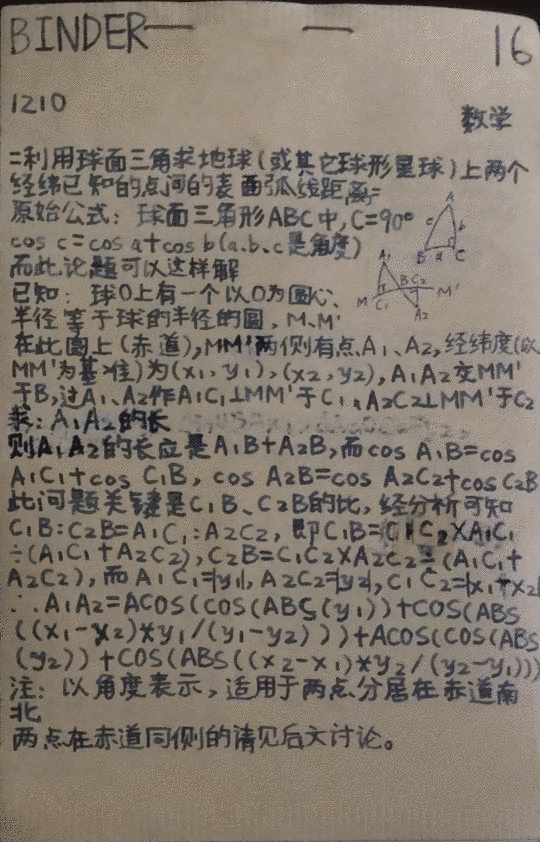 BINDER
16
1210
数学
二利用球面三角求地球(或其它球形星球)上两个
经纬已知的点间的表面弧线距离=
原始公式:球面三角形ABC中,C=90°
cos c=cos a+cos b(a、b、c是角度)
而此论题可以这样解
已知:球O上有一个以O为圆心、
半径等于球的半径的圆,M、M'
在此圆上(赤道),MM'两侧有点A1、A2,经纬度(以
MM'为基准)为(x1,y1),(x2,y2),A1A2交MM'
于B,过A1、A2作A1C1⊥MM'于C1,A2C2⊥MM'于C2
求:A1A2的长
则A1A2的长应是A1B+A2B,而cos A1B=cos
A1C1+cos C1B, cos A2B=cos A2C2+cos C2B
此问题关键是C1B、C2B的比,经分析可知
C1B:C2B=A1C1:A2C2, 即C1B=C1C2×A1C1
÷(A1C1+A2C2),C2B=C1C2×A2C2÷(A1C1+
A2C2),而A1C1=|y1|,A2C2=|y2|,C1C2=|x1-x2|
∴A1A2=ACOS(COS(ABS(y1))+COS(ABS
((x1-x2)*y1/(y1-y2))))+ACOS(COS(ABS
(y2))+COS(ABS((x2-x1)*y2/(y2-y1))))
注:以角度表示,适用于两点分居在赤道南
北
两点在赤道同侧的请见后文讨论。
A
c
b
B
a
C
A1
B
C2
M
C1
M'
A2